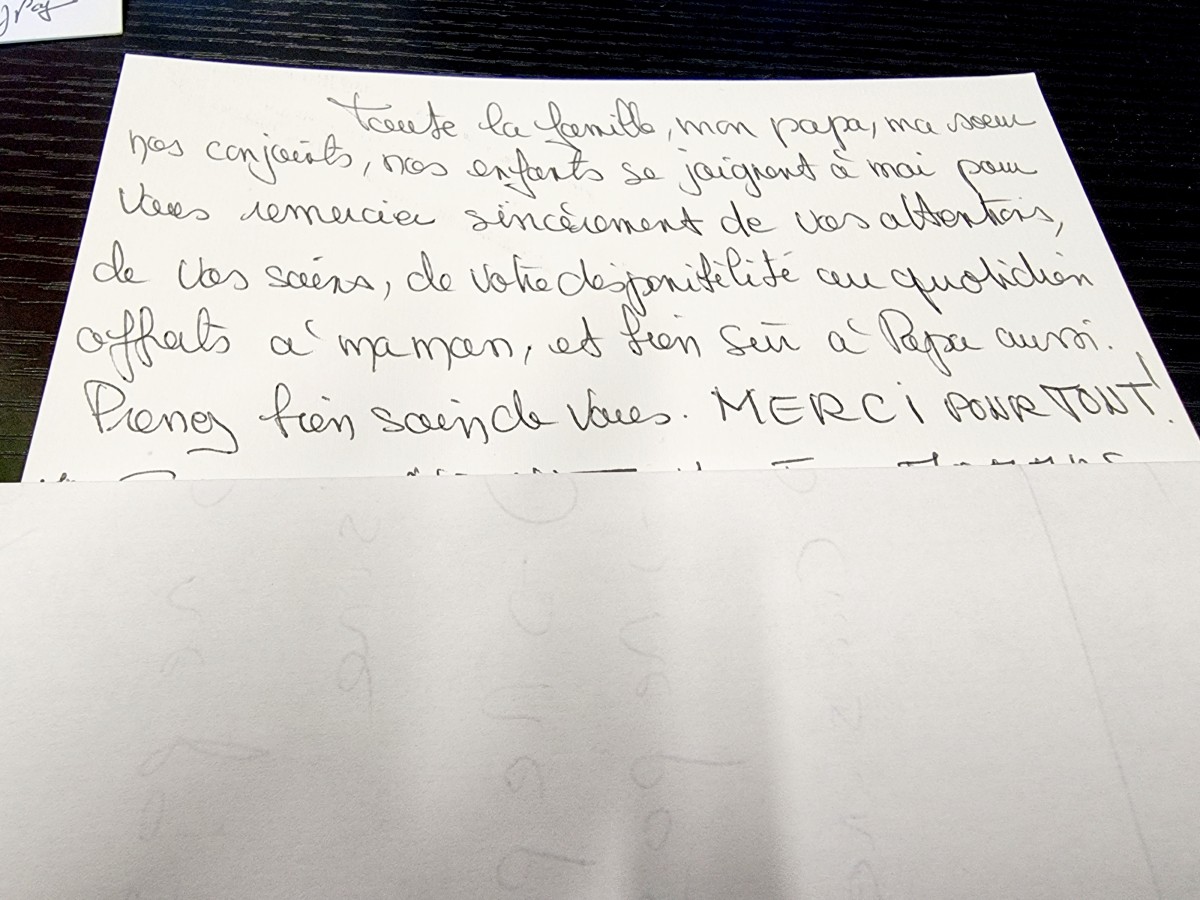 Toute la famille, mon papa, ma soeur
nos conjoints, nos enfants se joignent à moi pour
Vous remercier sincèrement de vos attentions,
de vos soins, de votre disponibilité au quotidien
offerts à maman, et bien sûr à Papa aussi.
Prenez bien soin de Vous. MERCI POUR TOUT!